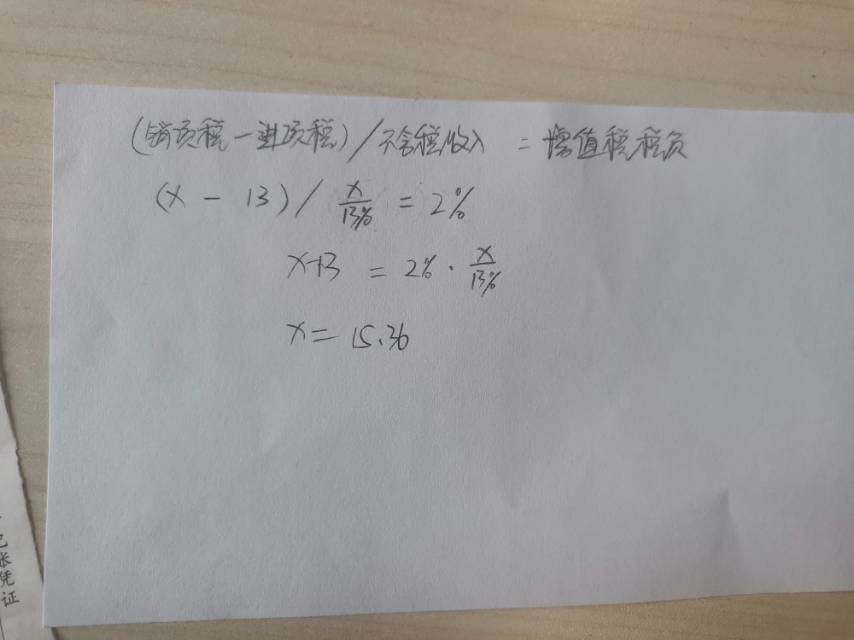 (销项税-进项税)/不含税收入 = 增值税税负
(x - 13) / x/13% = 2%
x-13 = 2% · x/13%
x = 15.36
记
账
凭
证